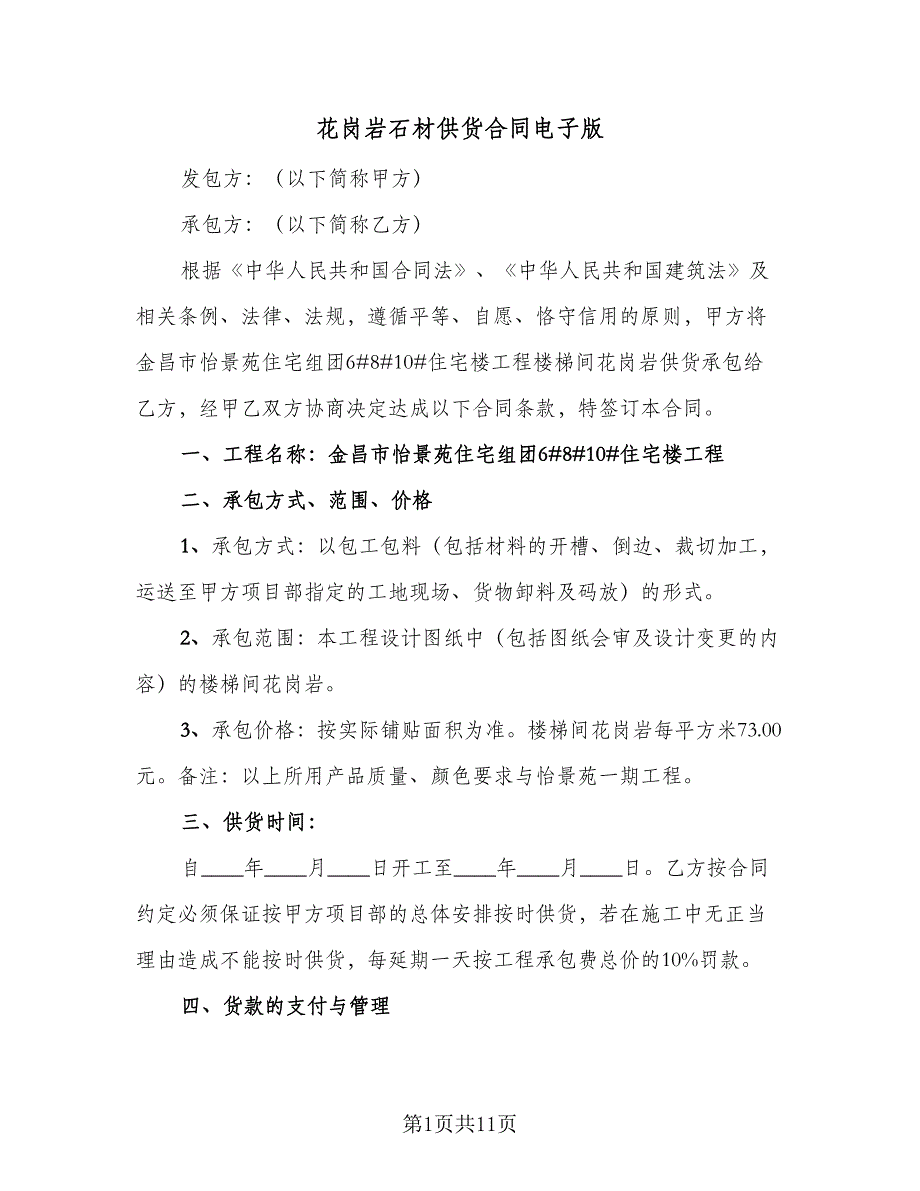 花岗岩石材供货合同电子版
发包方：（以下简称甲方）
承包方：（以下简称乙方）
根据《中华人民共和国合同法》、《中华人民共和国建筑法》及
相关条例、法律、法规，遵循平等、自愿、恪守信用的原则，甲方将
金昌市怡景苑住宅组团6#8#10#住宅楼工程楼梯间花岗岩供货承包给
乙方，经甲乙双方协商决定达成以下合同条款，特签订本合同。
一、工程名称：金昌市怡景苑住宅组团6#8#10#住宅楼工程
二、承包方式、范围、价格
1、承包方式：以包工包料（包括材料的开槽、倒边、裁切加工，
运送至甲方项目部指定的工地现场、货物卸料及码放）的形式。
2、承包范围：本工程设计图纸中（包括图纸会审及设计变更的内
容）的楼梯间花岗岩。
3、承包价格：按实际铺贴面积为准。楼梯间花岗岩每平方米73.00
元。备注：以上所用产品质量、颜色要求与怡景苑一期工程。
三、供货时间：
自____年____月____日开工至____年____月____日。乙方按合同
约定必须保证按甲方项目部的总体安排按时供货，若在施工中无正当
理由造成不能按时供货，每延期一天按工程承包费总价的10%罚款。
四、货款的支付与管理
第1页共11页